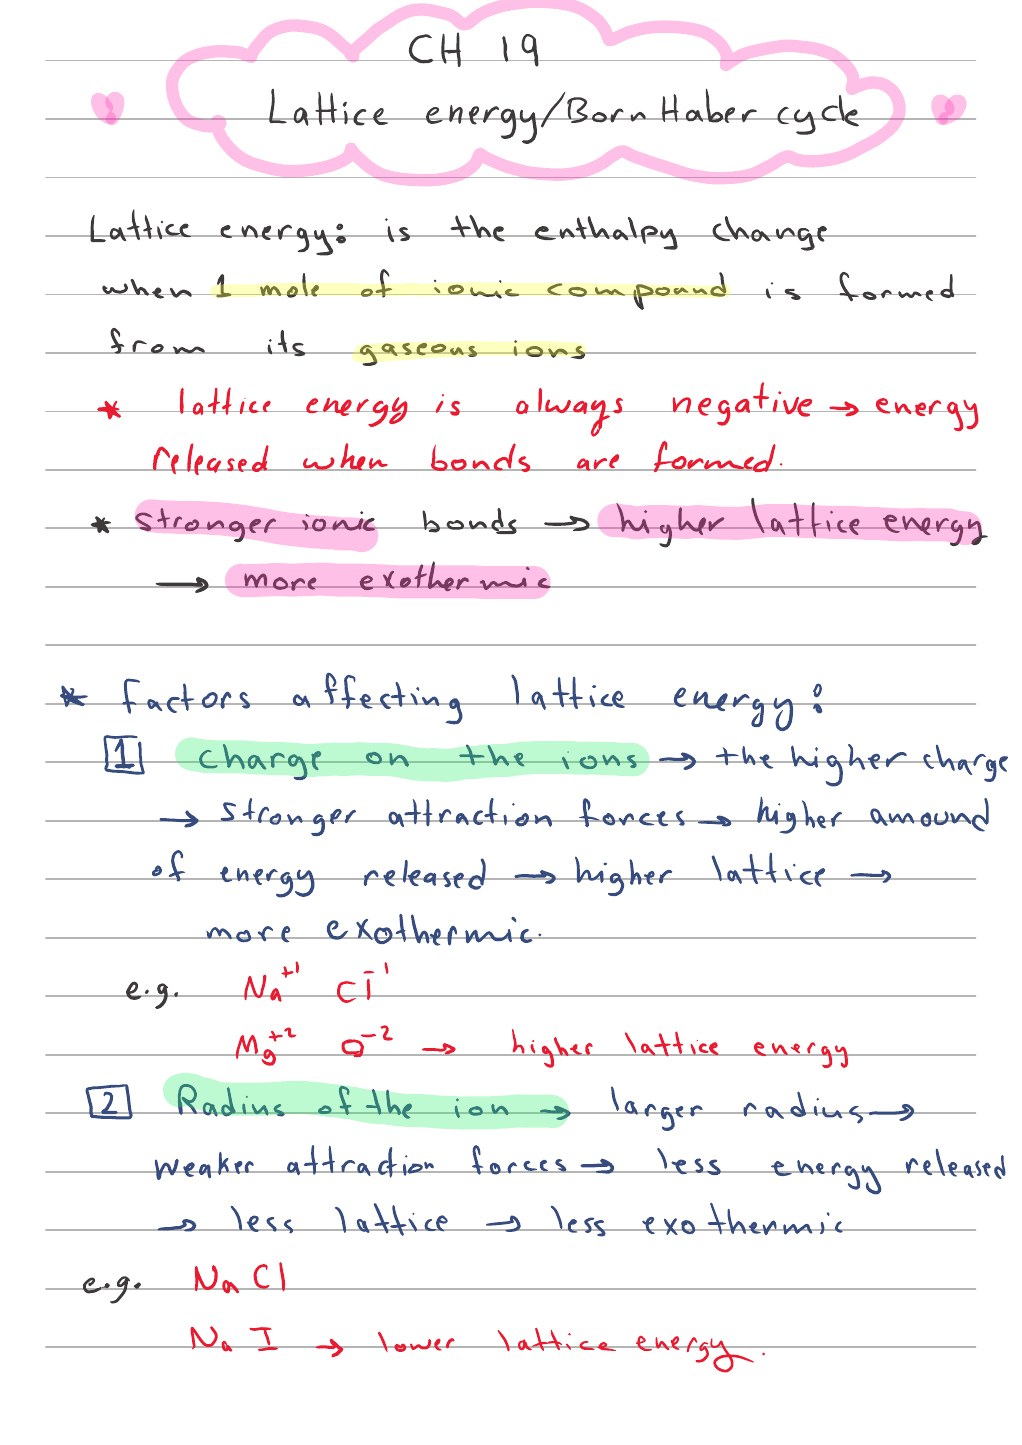 CH 19
Lattice energy/Born Haber cycle
Lattice energy: is the enthalpy change
when 1 mole of ionic compound is formed
from its gaseous ions
* lattice energy is always negative → energy
released when bonds are formed.
* stronger ionic bonds → higher lattice energy
→ more exothermic
* factors affecting lattice energy:
1 charge on the ions → the higher charge
→ stronger attraction forces → higher amound
of energy released → higher lattice →
more exothermic.
e.g. Na⁺¹ Cl⁻¹
Mg⁺² O⁻² → higher lattice energy
2 Radius of the ion → larger radius →
weaker attraction forces → less energy released
→ less lattice → less exothermic
e.g. NaCl
NaI → lower lattice energy.